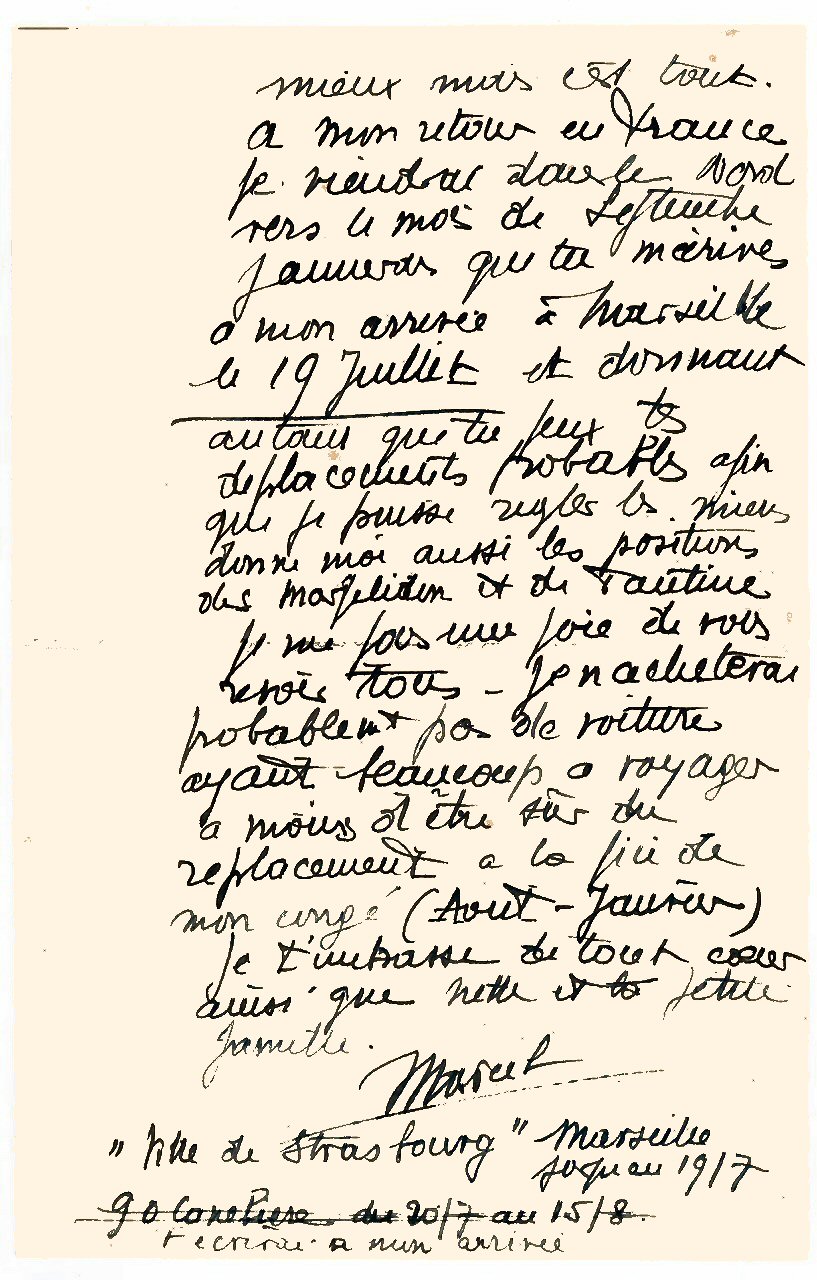 mieux mais c'est tout.
a mon retour en France
je viendrai dans le Nord
vers le mois de Septembre
J'aimerais que tu m'écrives
a mon arrivée à Marseille
le 19 Juillet et donnant
autant que tu peux tes
déplacements probables afin
que je puisse regler les miens
donne moi aussi les positions
des et de Tantine
Je me fais une joie de vous
revoir tous - Je n'acheterai
probablemt pas de voiture
ayant beaucoup a voyager
a moins d'être sûr du
replacement a la fin de
mon congé (Aout - Janvier)
Je t'embrasse de tout cœur
ainsi que et la petite
famille.
Marcel
"Ville de Strasbourg" Marseille
jusqu'au 19/7
90 Canebière du 20/7 au 15/8.
t'ecrirai a mon arrivée